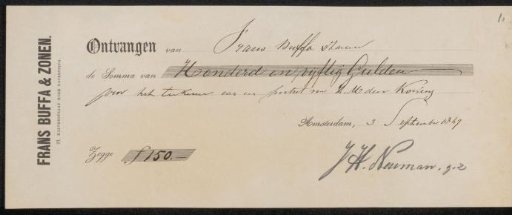 FRANS BUFFA & ZONEN.
Ontvangen van Frans Buffa & Zonen
de Somma van Honderd en vyftig Gulden
voor het teekenen van een portret van Z. M. den Koning
Amsterdam, 3 September 1849
Zegge f 150.—
J. H. Neuman.